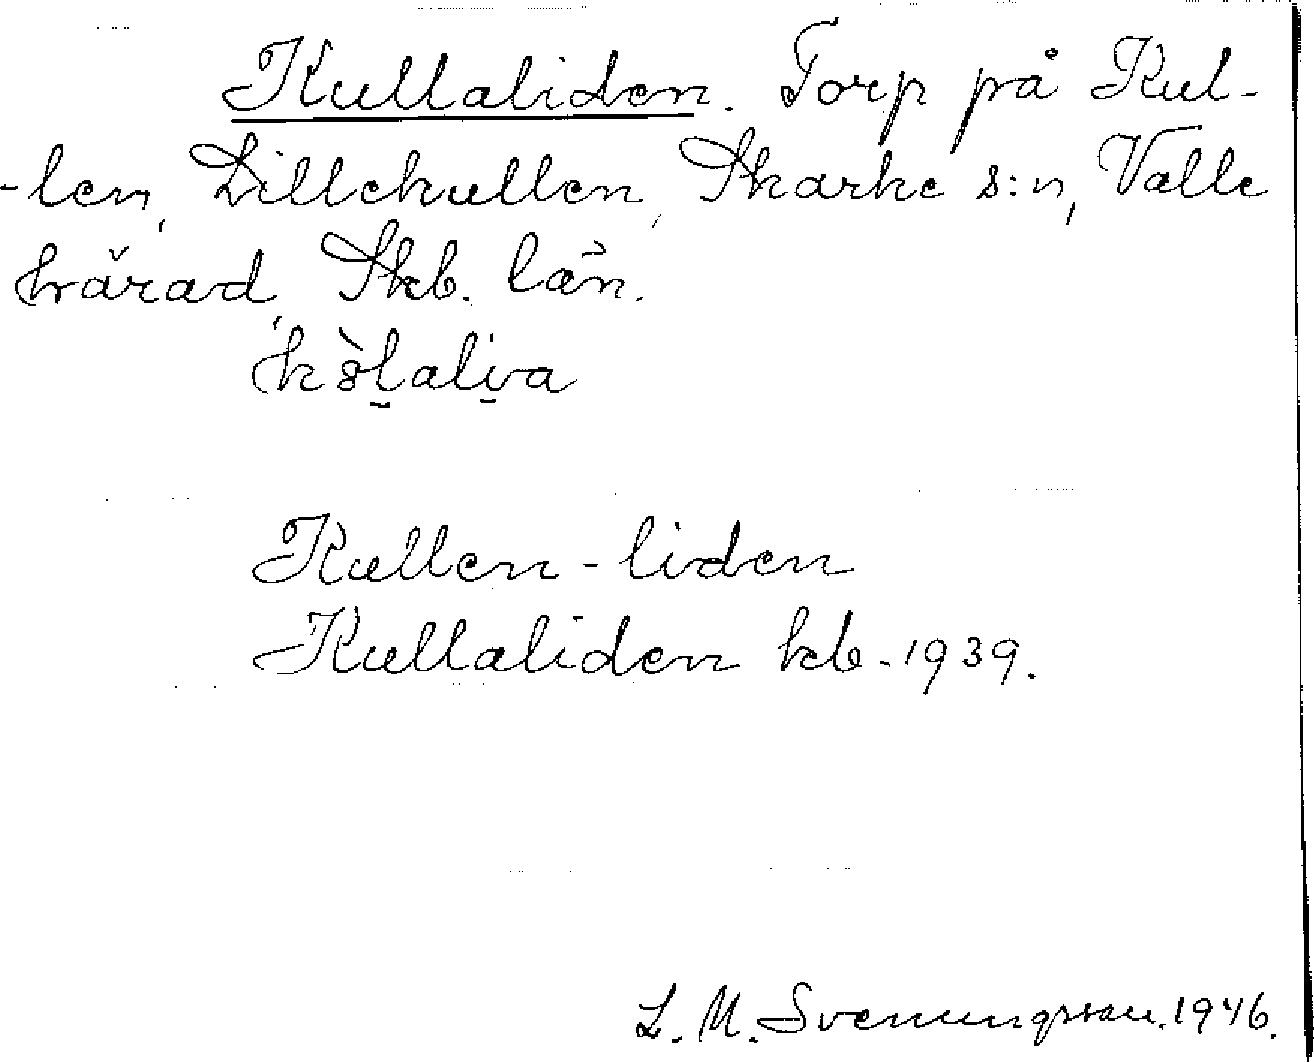 Kullaliden. Torp på Kul-
-len, Lillekullen, Skarke s:n, Valle
härad, Skb. län.
Kullen-liden
Kullaliden kb. 1939.
L. M. Svenungsson. 1946.